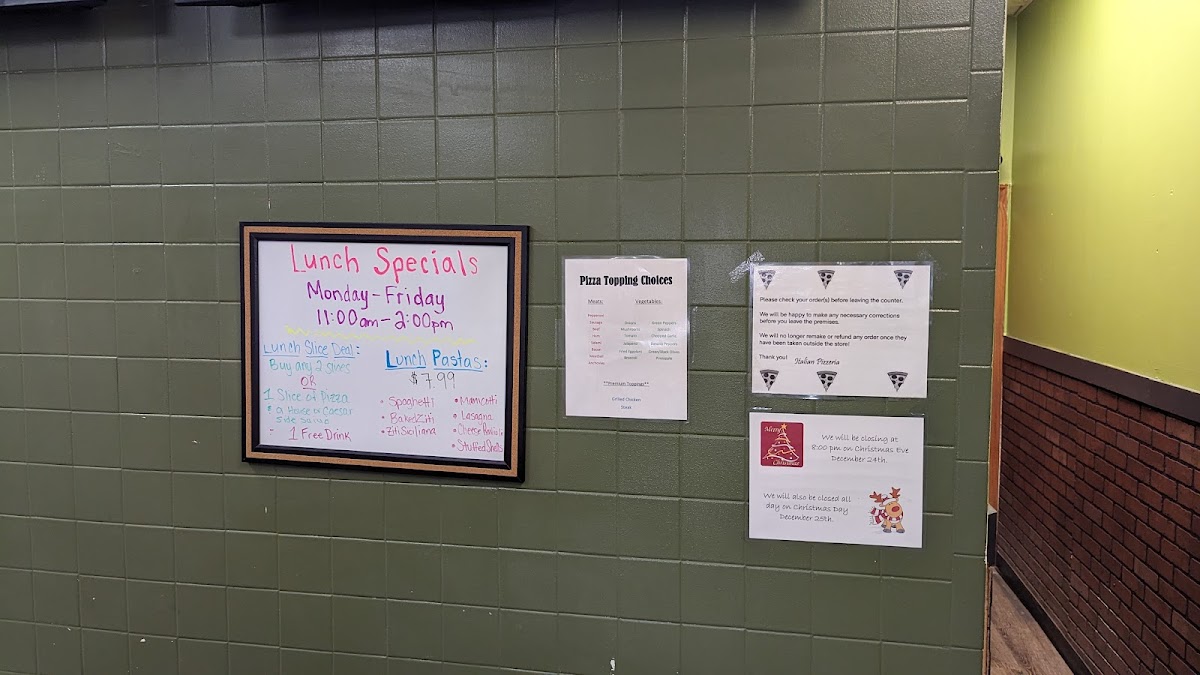 Lunch Specials
Monday-Friday
11:00am-2:00pm
Lunch Slice Deal:
Buy any 2 slices
OR
1 Slice of Pizza
& a House or Caesar
Side Salad
- 1 Free Drink
Lunch Pastas:
$7.99
• Spaghetti
• Baked Ziti
• Ziti Siciliana
• Manicotti
• Lasagna
• Cheese Ravioli
• Stuffed Shells
Pizza Topping Choices
Meats:
Pepperoni
Sausage
Beef
Ham
Salami
Bacon
Meatball
Anchovies
Vegetables:
Onions
Mushrooms
Tomato
Jalapeño
Fried Eggplant
Broccoli
Green Peppers
Spinach
Banana Peppers
Green/Black Olives
Pineapple
**Premium Toppings**
Grilled Chicken
Steak
Please check your order(s) before leaving the counter.
We will be happy to make any necessary corrections
before you leave the premises.
We will no longer remake or refund any order once they
have been taken outside the store!
Thank you! Italian Pizzeria
Merry
Christmas
We will be closing at
8:00 pm on Christmas Eve
December 24th.
We will also be closed all
day on Christmas Day
December 25th.